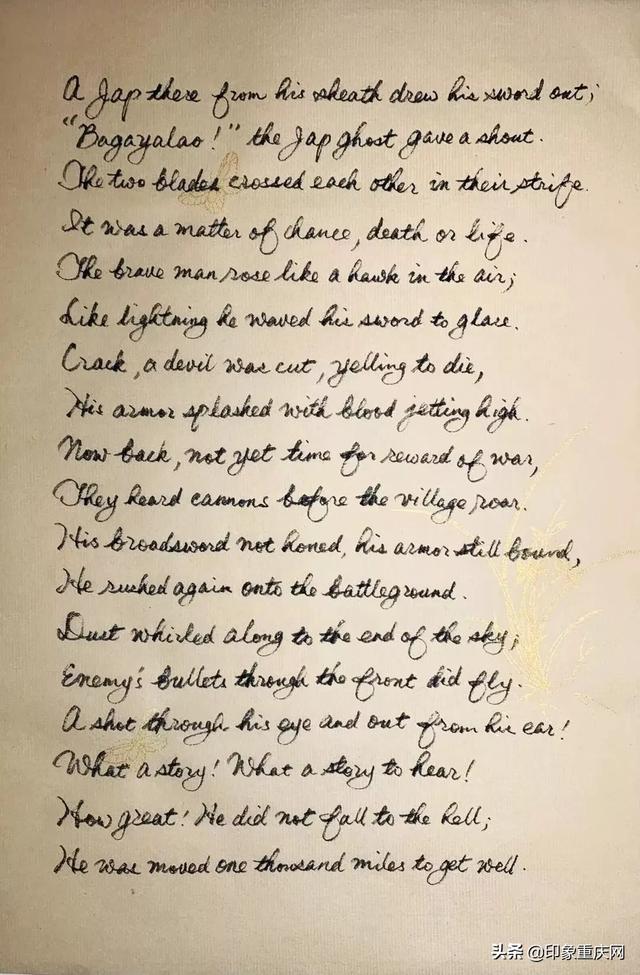 A Jap there from his sheath drew his sword out;
"Bagayalao!" the Jap ghost gave a shout.
The two blades crossed each other in their strife.
It was a matter of chance, death or life.
The brave man rose like a hawk in the air;
Like lightning he waved his sword to glare.
Crack, a devil was cut, yelling to die,
His armor splashed with blood jetting high.
Now back, not yet time for reward of war,
They heard cannons before the village roar.
His broadsword not honed, his armor still bound,
He rushed again onto the battleground.
Dust whirled along to the end of the sky;
Enemy's bullets through the front did fly.
A shot through his eye and out from his ear!
What a story! What a story to hear!
How great! He did not fall to the hell;
He was moved one thousand miles to get well.
头条 @印象重庆网